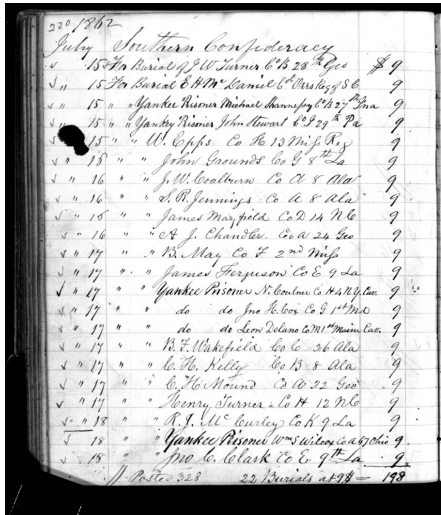 220 1862
July Southern Confederacy
15 For Burial of J W Turner Co K 28th Geo $ 9
" 15 For Burial E H McDaniel Co Orrs Reg of S C 9
" 15 " " Yankee Prisoner Michael Shannesy Co K 27th Ina 9
" 15 " " Yankey Prisoner John Stewart Co I 29th Pa 9
15 " " W. Epps Co K 13 Miss Reg 9
" 15 " " John Grounds Co G 8th La 9
" 16 " " J. W. Coalburn Co A 8 Ala 9
" 16 " " S. R. Jennings Co A 8 Ala 9
" 16 " " James Mayfield Co D 14 N C 9
" 16 " " A J. Chandler Co A 24 Geo 9
" 17 " " B. May Co F 2nd Miss 9
" 17 " " James Ferguson Co E 9 La 9
" 17 " " Yankee Prisoner N. Coulner Co H 4 N.Y. Cav. 9
" 17 " " do do Jno H. Cox Co G 1st Md 9
" 17 " " do do Leon Delano Co M 1st Maine Cav. 9
" 17 " " B. F. Wakefield Co C 26 Ala 9
" 17 " " C. H. Kelly Co B 8 Ala 9
" 17 " " C. H. Mound Co A 22 Geo 9
" 17 " " Henry Turner Co H 12 N C 9
" 18 " " R. J. McCurley Co K 9 La 9
" 18 " " Yankee Prisoner Wm S Wilcox Co A 67 Ohio 9
" 18 " " Jno C. Clark Co E 9th La 9
// Posted 328 22 Burials at 9$ 198